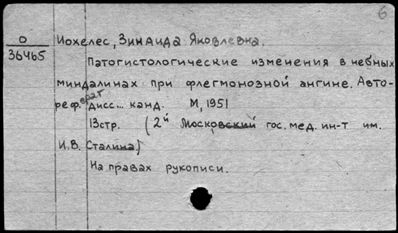 6
О Иохелес, Зинаида Яковлевна.
36465
Патогистологические изменения в небных
миндалинах при флегмонозной ангине. Авто-
реф. дисс... канд. М, 1951
13стр. (2й Московский гос. мед. ин-т им.
И.В. Сталина)
На правах рукописи.